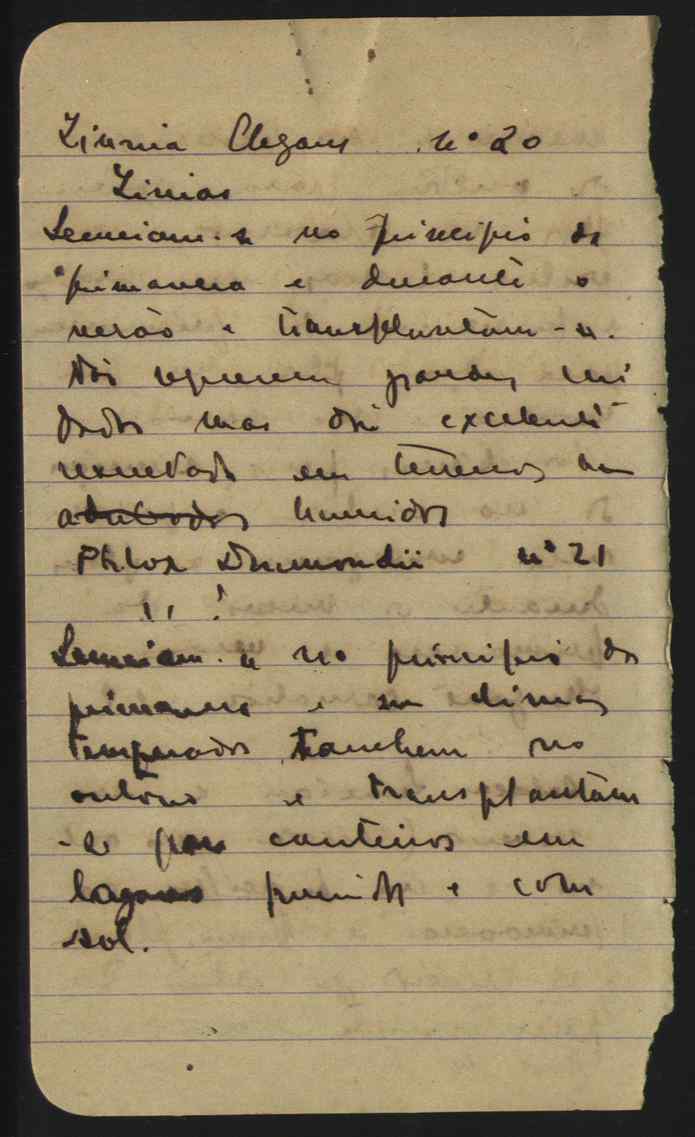 Zinnia Elegans nº 20
Zinias
Semeiam-se no principio da
primavera e durante o
verão e transplantam-se.
Não requerem grandes cui
dados mas dão excelente
resultado em terrenos bem
adubados humidos
Phlox Drumondii nº 21
" "
Semeiam-se no principio da
primavera e em climas
temperados tambem no
outono e transplantam
-se para canteiros em
lugares humidos e com
sol.